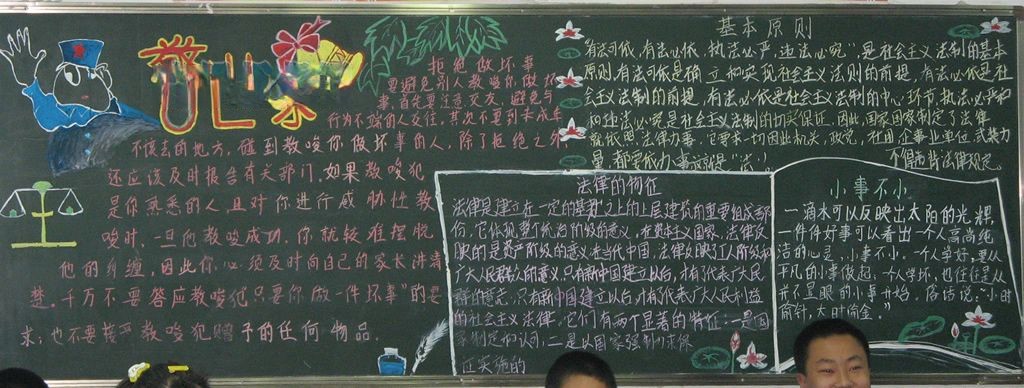 拒绝做坏事
要避免别人教唆你做坏
事，首先要注意交友，避免与
行为不端的人交往，其次不要到未成年
不该去的地方，碰到教唆你做坏事的人，除了拒绝之外
还应该及时报告有关部门，如果教唆犯
是你熟悉的人，且对你进行威胁性教
唆时，一旦他教唆成功，你就较难摆脱
他的纠缠，因此你必须及时向自己的家长讲清
楚，千万不要答应教唆他"只要你做一件坏事"的要
求；也不要接受教唆犯赠予的任何物品。
基本原则
"有法可依，有法必依，执法必严，违法必究"，是社会主义法制的基本
原则，有法可依是确立和实现社会主义法制的前提，有法必依是社
会主义法制的中心环节，执法必严和
违法必究是社会主义法制的切实保证，因此，国家制定了法律
就依照法律办事，它要求一切国家机关，政党，社团，企事业单位，武装力
量，都要依
不得违背法律规定。
法律的特征
法律是建立在一定的基础之上的上层建筑的重要组成部
份，它体现了统治阶级的意义，在社会主义国家，法律反
映的是无产阶级的意义，在当代中国，法律反映工人阶级和
广大人民群众的意义，只有新中国建立以后，才有了代表广大人民
只有新中国建立以后，才有了代表广大人民利益
的社会主义法律，它们有两个显著的特征：一是国
家制定和认可；二是以国家强制力来保
证实施的
小事不小
一滴水可以反映出太阳的光辉，
一件件好事可以看出一个人高尚纯
洁的心灵，小事不小，一个人学好，要从
平凡的小事做起，一个人学坏，也往往是从
并不显眼的小事开始，俗话说："小时
偷针，大时偷金。"